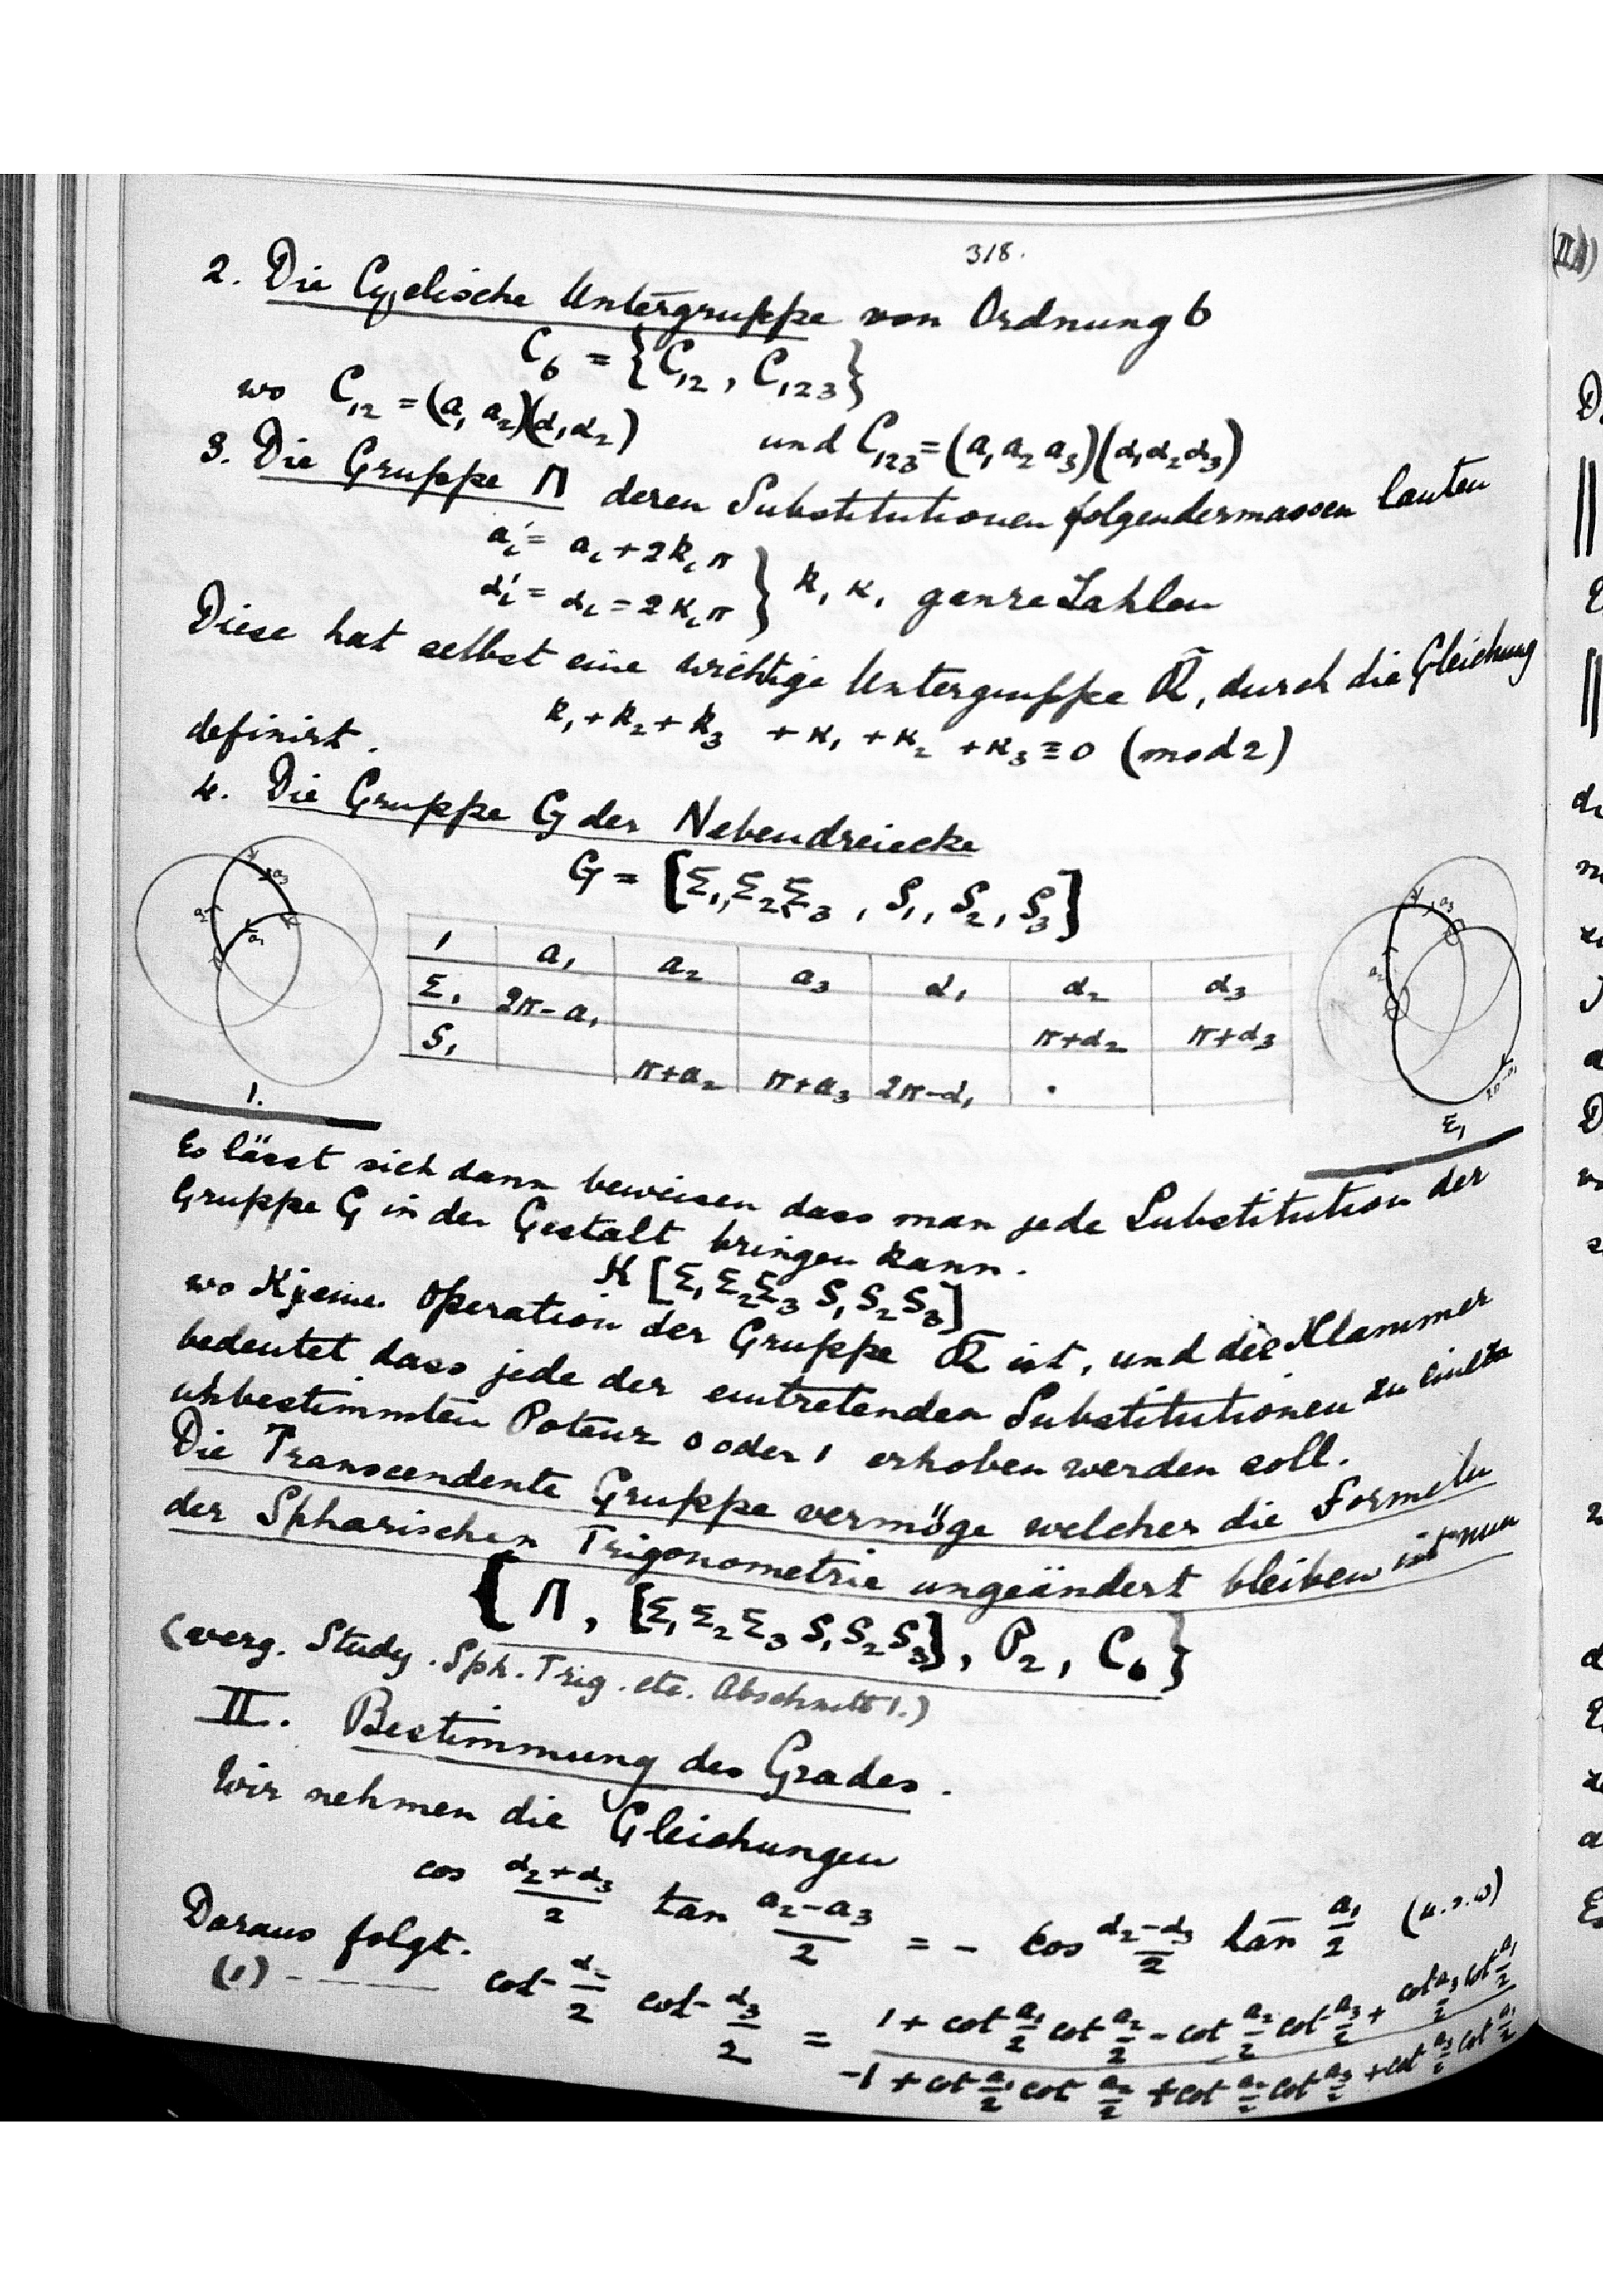 318.
2. Die Cyclische Untergruppe von Ordnung 6
C₆ = {C₁₂, C₁₂₃}
wo C₁₂ = (a₁ a₂)(α₁α₂) und C₁₂₃ = (a₁ a₂ a₃)(α₁α₂α₃)
3. Die Gruppe Π deren Substitutionen folgendermassen lauten
a'ᵢ = aᵢ + 2kᵢπ
α'ᵢ = αᵢ = 2κᵢπ } k, κ, ganze Zahlen
Diese hat selbst eine wichtige Untergruppe , durch die Gleichung
k₁ + k₂ + k₃ + κ₁ + κ₂ + κ₃ ≡ 0 (mod 2)
definirt.
4. Die Gruppe G der Nebendreiecke
G = [Σ₁, Σ₂, Σ₃, S₁, S₂, S₃]
1 a₁ a₂ a₃ α₁ α₂ α₃
Σ₁ 2π-a₁ π+α₂ π+α₃
S₁ π+a₂ π+a₃ 2π-α₁
a₂ a₃ a₁
1.
a₂ a₃ 2π-a₁
Σ₁
Es lässt sich dann beweisen dass man jede Substitution der
Gruppe G in der Gestalt bringen kann.
K [Σ₁ Σ₂ Σ₃ S₁ S₂ S₃]
wo K eine Operation der Gruppe ist, und die Klammer
bedeutet dass jede der eintretenden Substitutionen zu einer
unbestimmten Potenz 0 oder 1 erhoben werden soll.
Die Transcendente Gruppe vermöge welcher die Formeln
der Spharischen Trigonometrie ungeändert bleiben ist nun
{Π, [Σ₁ Σ₂ Σ₃ S₁ S₂ S₃], P₂, C₆}
(verg. Study. Sph. Trig. etc. Abschnitt 1.)
II. Bestimmung des Grades.
Wir nehmen die Gleichungen
cos (α₂+α₃)/2 tan (a₂-a₃)/2 = - cos (α₂-α₃)/2 tan a₁/2 (u.s.w)
Daraus folgt.
(1) - cot α₂/2 cot α₃/2 = (1 + cot a₁/2 cot a₂/2 - cot a₂/2 cot a₃/2 + cot a₃/2 cot a₁/2) / (-1 + cot a₁/2 cot a₂/2 + cot a₂/2 cot a₃/2 + cot a₃/2 cot a₁/2)